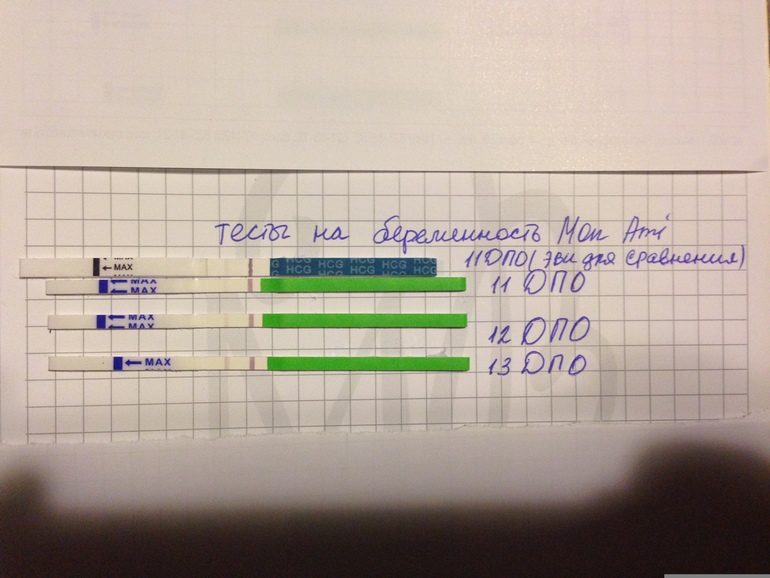 тесты на беременность Mon Ami
MAX HCG HCG HCG HCG HCG 11 ДПО (эви для сравнения)
MAX
MAX 11 ДПО
MAX
MAX 12 ДПО
MAX 13 ДПО